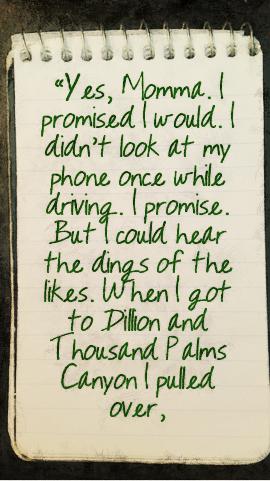 “Yes, Momma. I
promised I would. I
didn't look at my
phone once while
driving.. I promise.
But I could hear
the dings of the
likes. When I got
to Dillion and
Thousand Palms
Canyon I pulled
over,